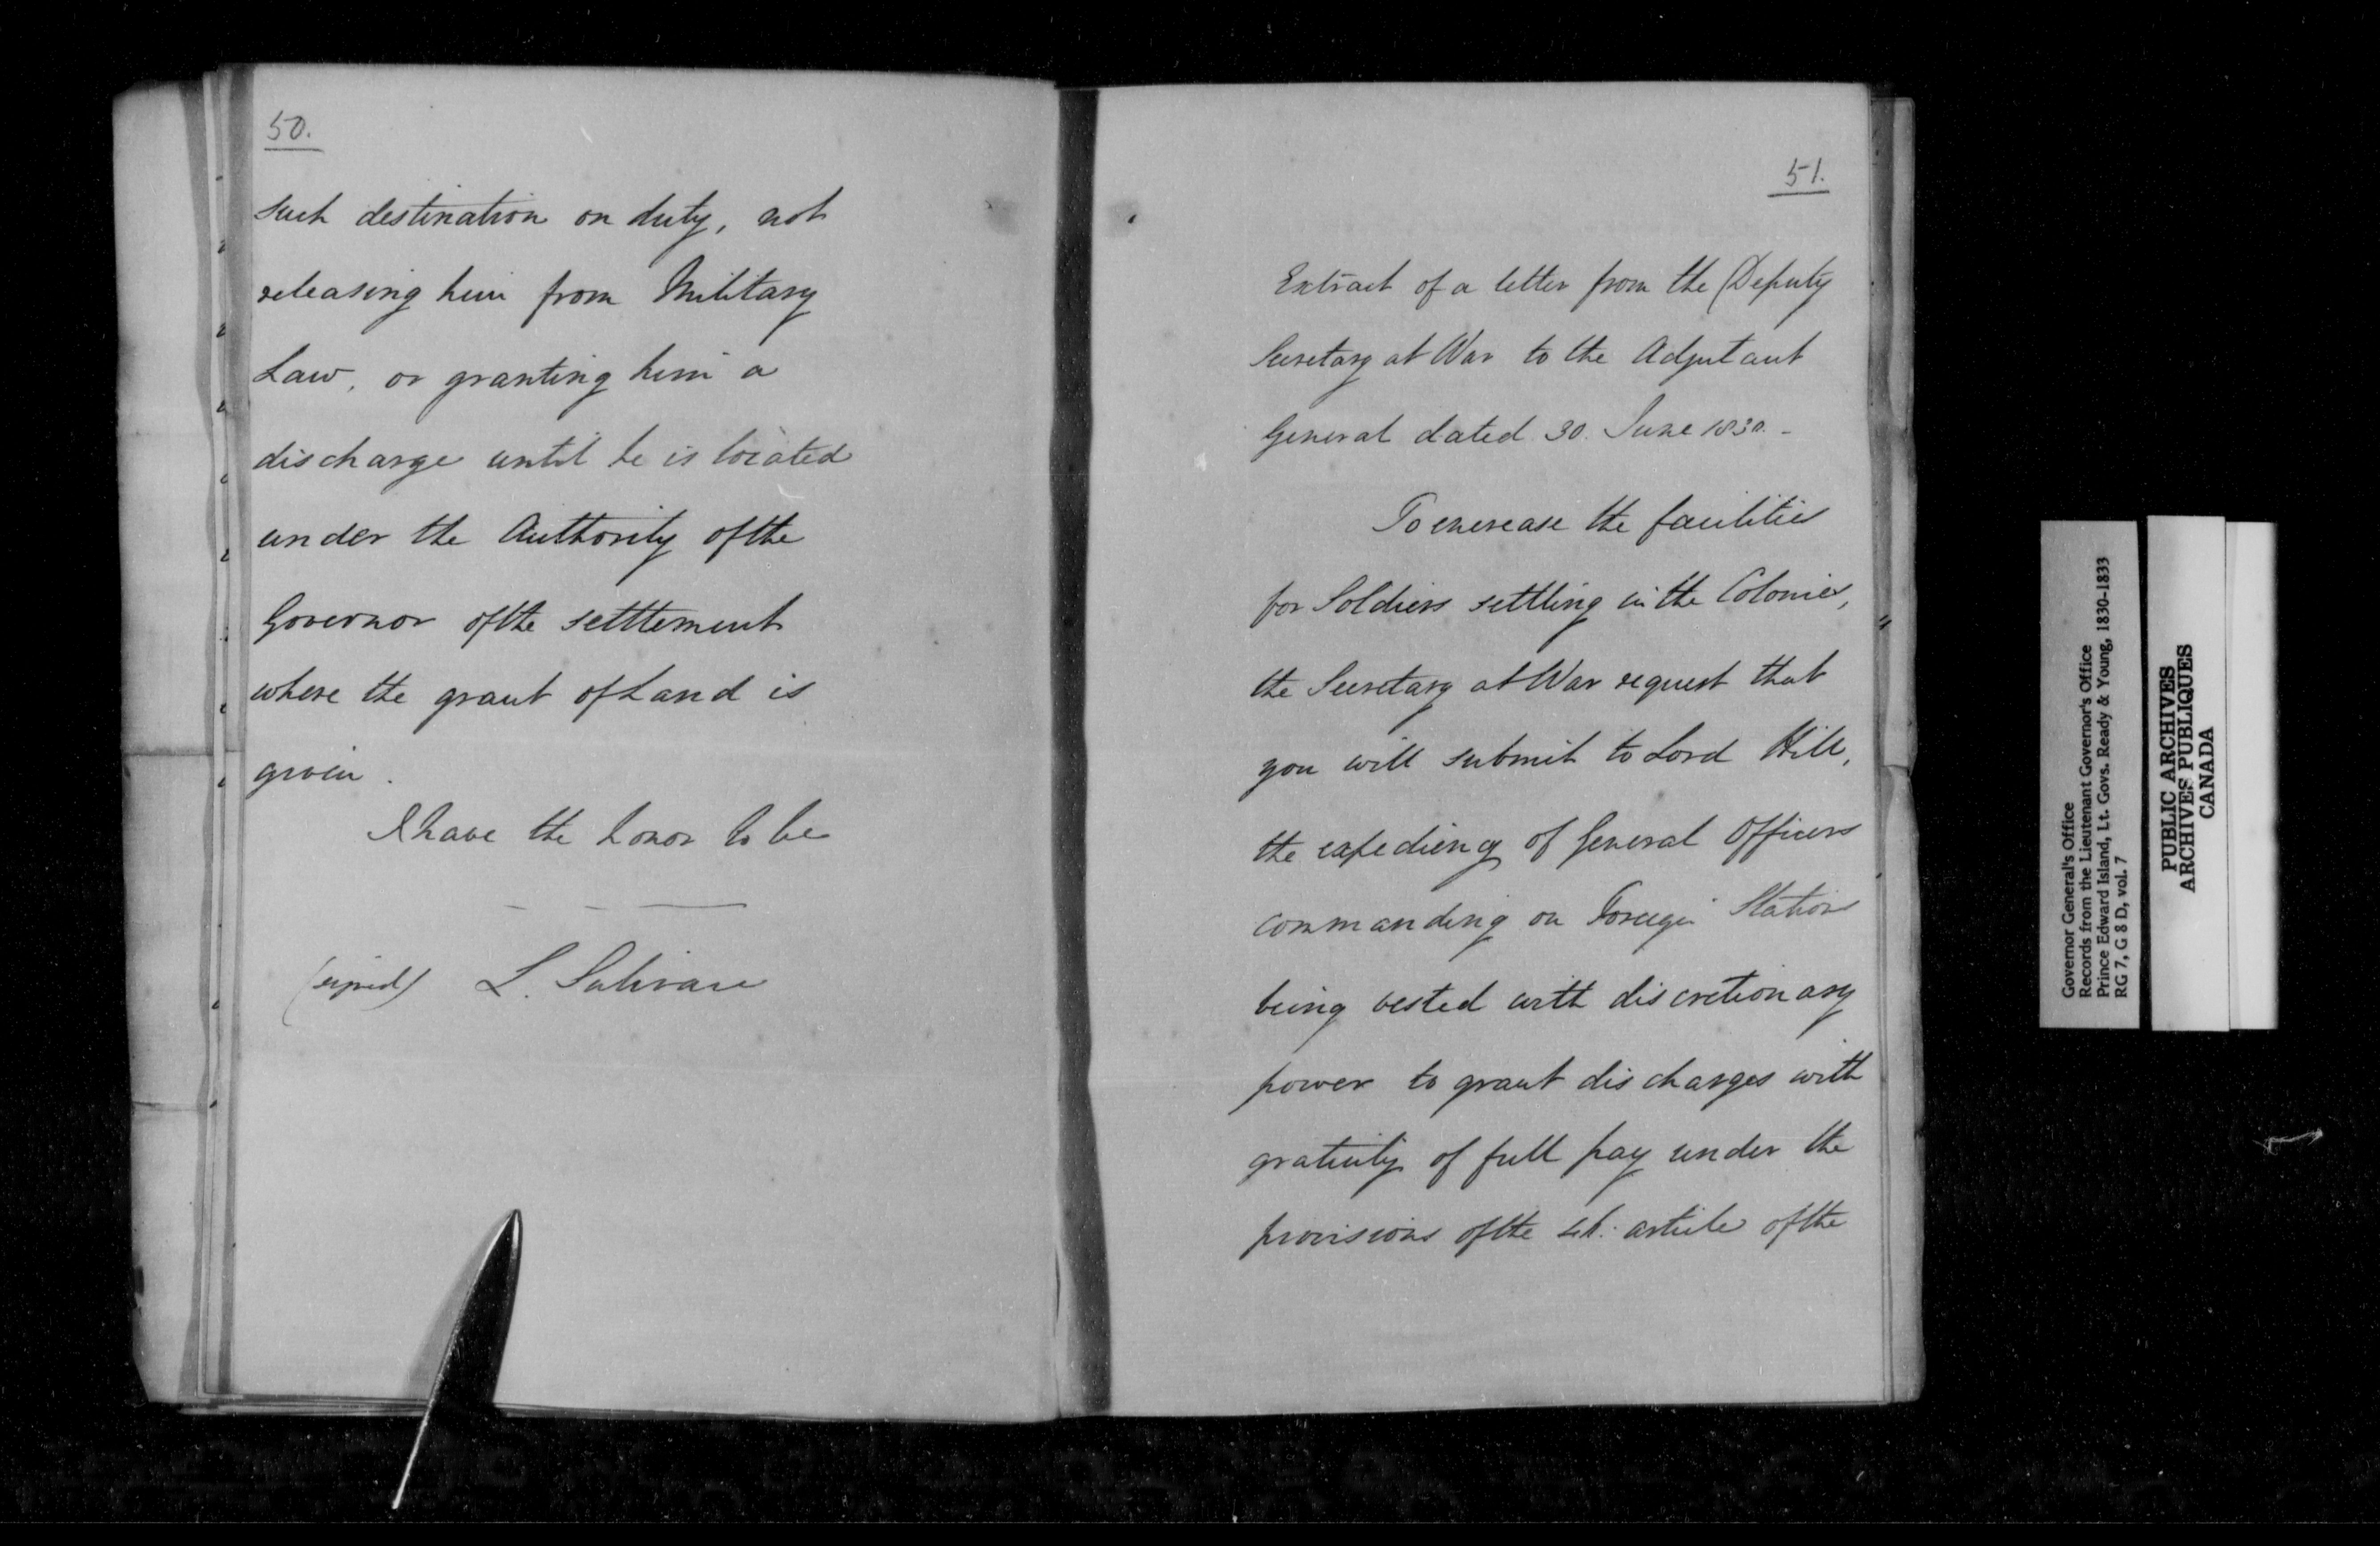 50.
such destination on duty, not
releasing him from Military
Law, or granting him a
discharge until he is located
under the Authority of the
Governor of the settlement
where the grant of Land is
given.
I have the honor to be
(signed) L. Sulivan
51.
Extract of a letter from the Deputy
Secretary at War to the Adjutant
General dated 30. June 1830. -
To encrease the facilities
for Soldiers settling in the Colonies,
the Secretary at War request that
you will submit to Lord Hill,
the expediency of General Officers
commanding on Foreign Stations
being vested with discretionary
power to grant discharges with
gratuity of full pay under the
provisions of the article of the
Governor General's Office
Records from the Lieutenant Governor's Office
Prince Edward Island, Lt. Govs. Ready & Young, 1830-1833
RG 7, G 8 D, vol. 7
PUBLIC ARCHIVES
ARCHIVES PUBLIQUES
CANADA